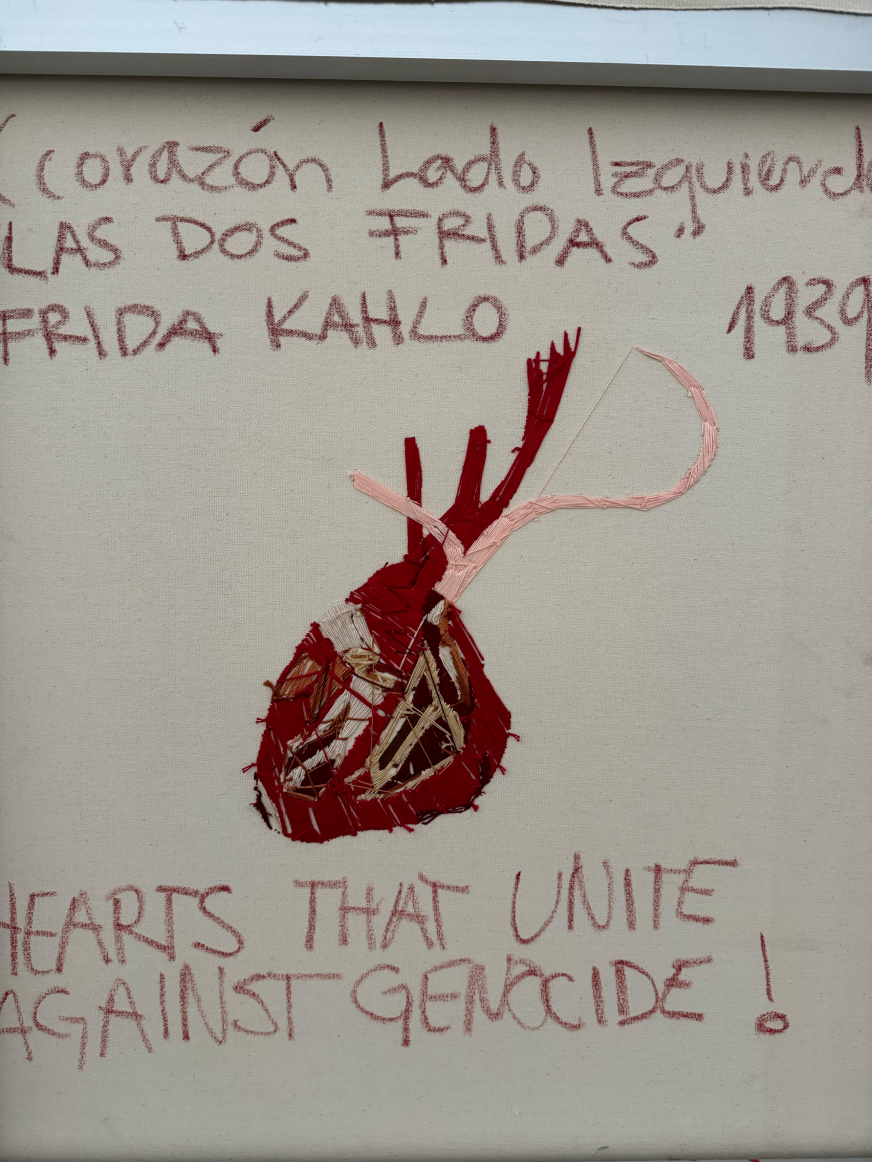 (corazón Lado Izquierdo
"LAS DOS FRIDAS"
FRIDA KAHLO 1939
HEARTS THAT UNITE
AGAINST GENOCIDE!